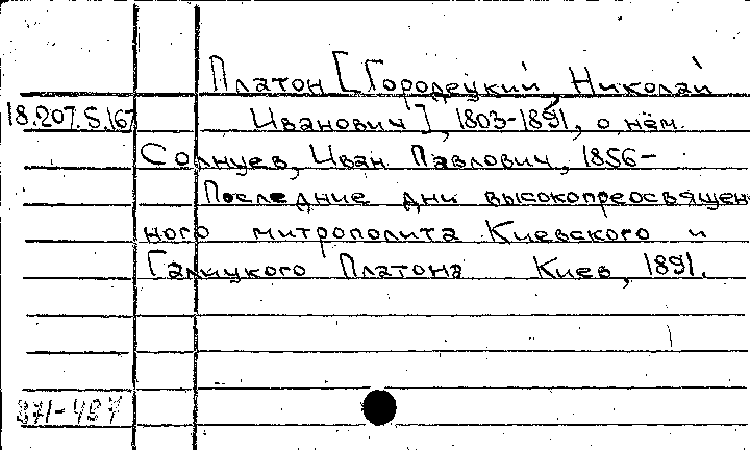 Платон [Городецкий, Николай
18.207.5.167 Иванович], 1803-1891, о нём.
Солнцев, Иван Павлович, 1856-
Последние дни высокопреосвящен-
ного митрополита Киевского и
Галицкого Платона Киев, 1891.
371-487